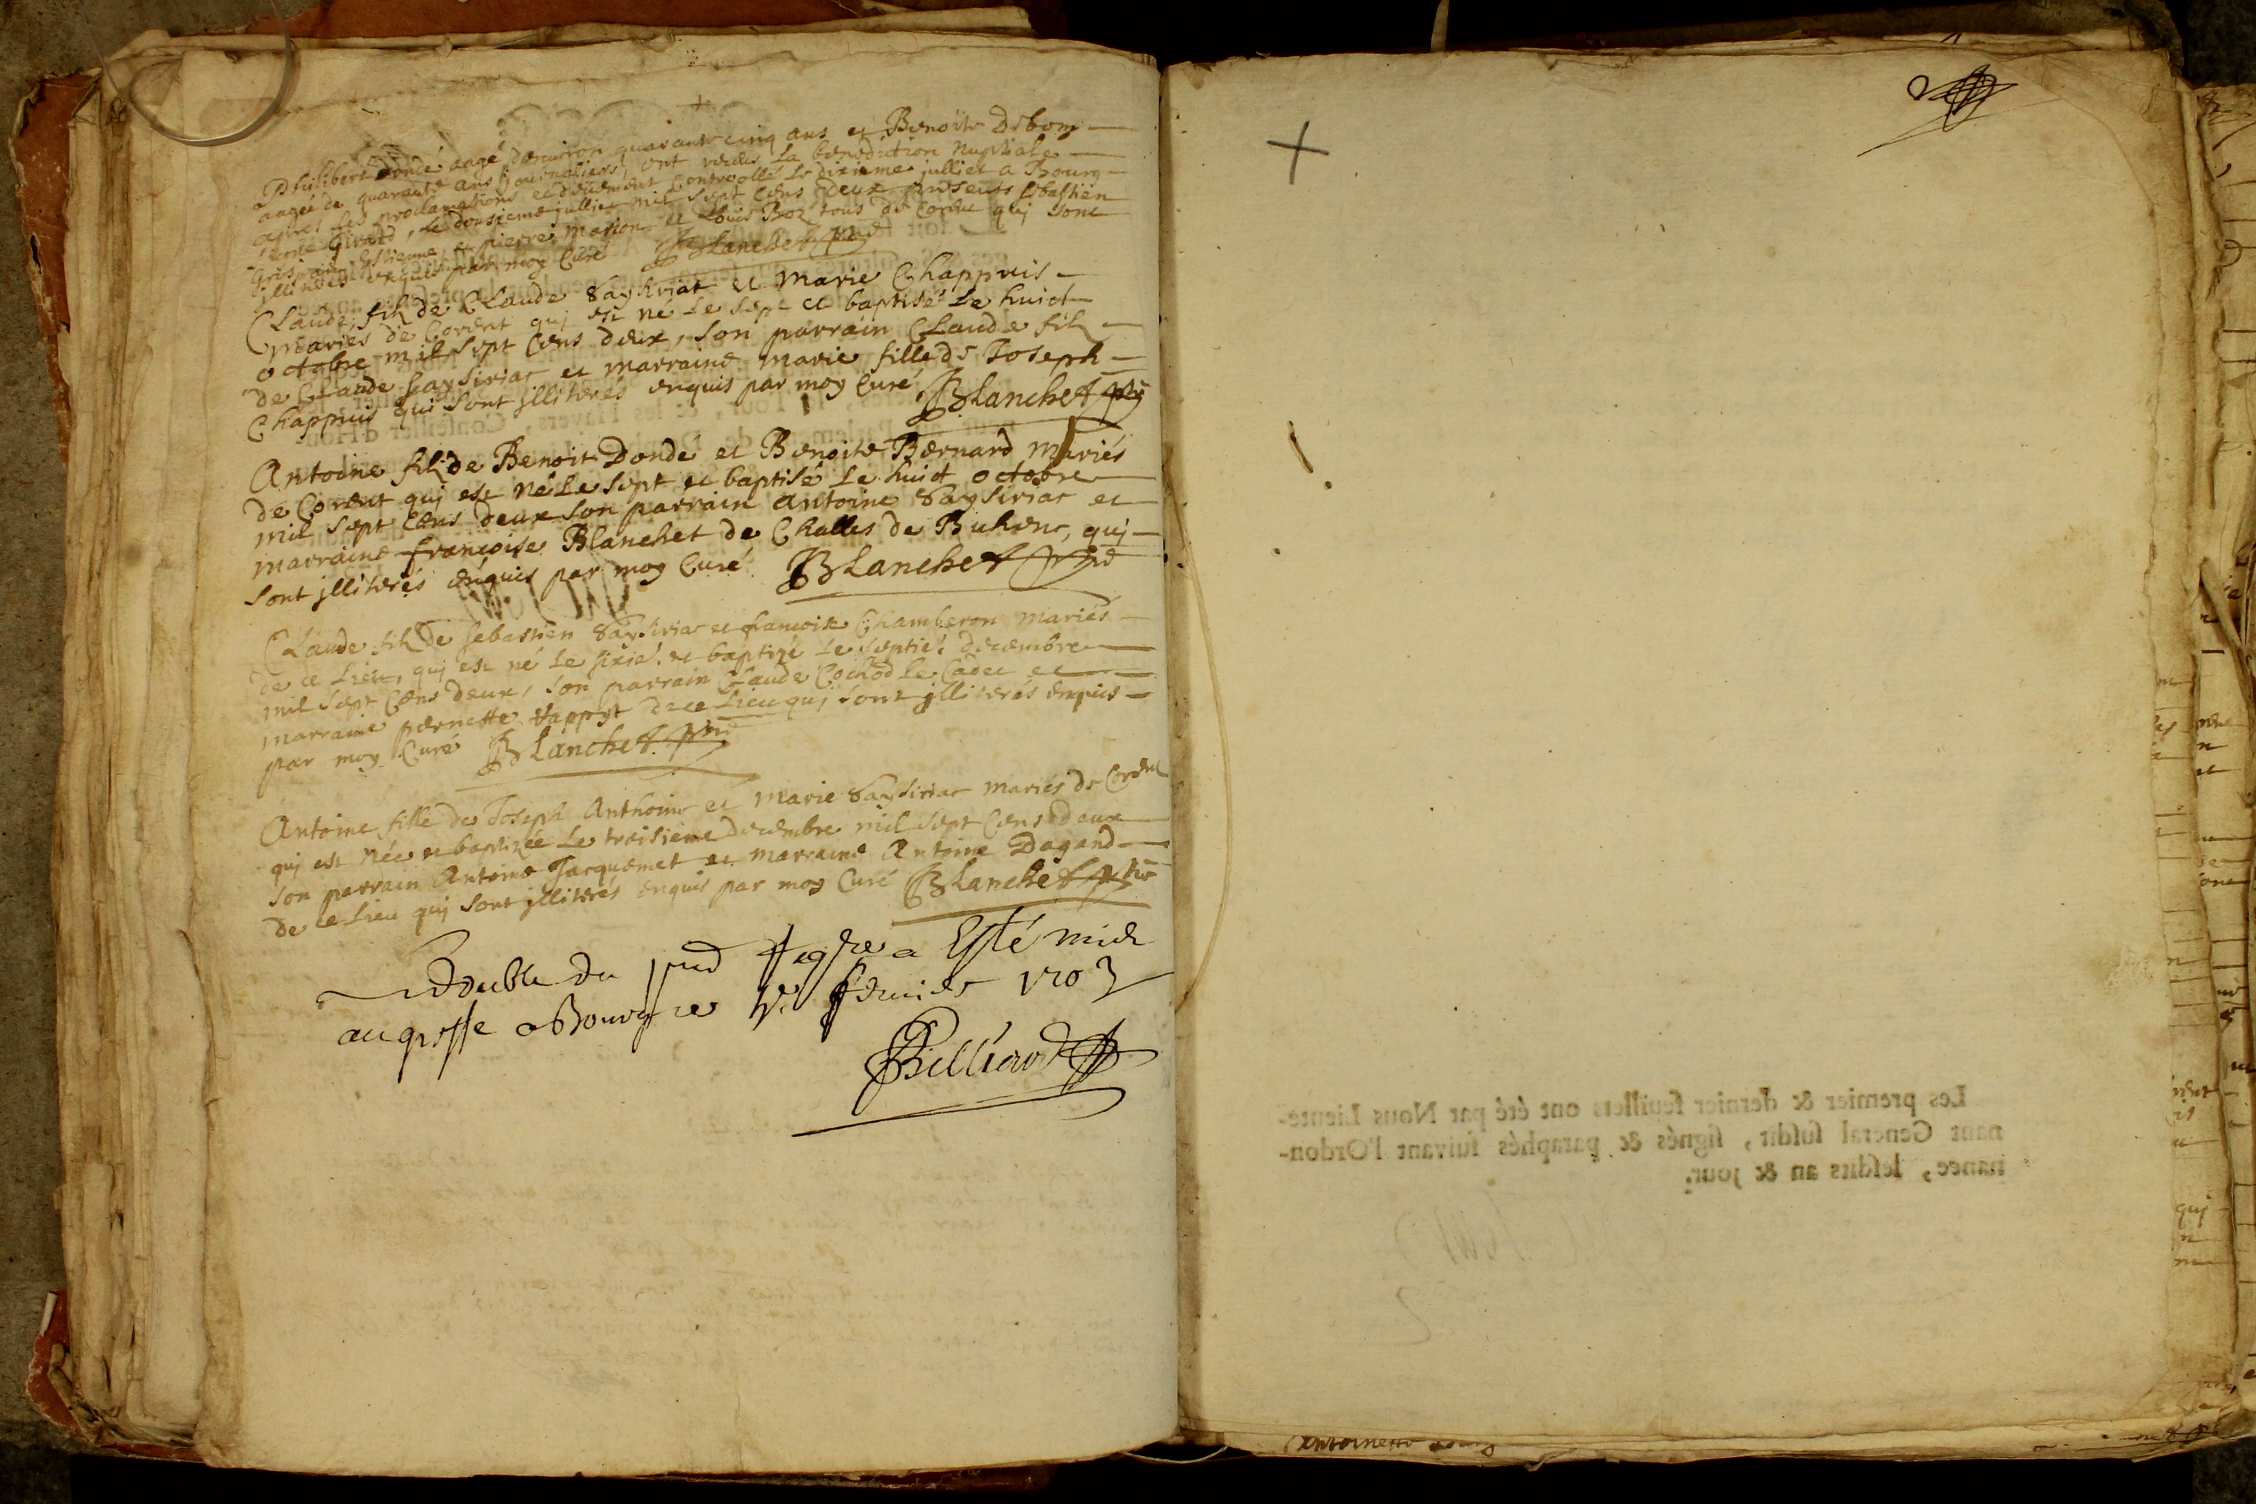 Philibert Dondé aagé denviron quarante cinq ans et Benoite Debom
aagée de quarante ans journaliers, ont receus la benediction nuptiale
apres les proclamations et deuement controollé le dixieme julliet a Bourg
signé Girard, le dousieme julliet mil sept cens deux presents sebastien
estienne et pierre marion et Louis Boz tous de Corent quj sont
jlliterés enquis par moy Curé Blanchet
Claude, filz de Claude Saysiriat et Marie Chappuis
mariés de Corent quj est né le sept et baptisé le huict
octobre mil sept cens deux, son parrain Claude filz
de Claude Saysiriat et marraine marie fille de Joseph
Chappuis qui sont jlliterés enquis par moy Curé Blanchet
Antoine filz de Benoit Dondé et Benoite Bernard mariés
de Corent quj est né le sept et baptisé le huict octobre
mil sept cens deux son parrain Antoine Saysiriat et
marraine françoise Blanchet de Challes de Buhenc, quj
sont jlliterés enquis par moy Curé Blanchet
Claude filz de sebastien Saysiriat et francoise Chamberon mariés
de ce lieu, quj est né le sixie. et baptizé le septie. decembre
mil sept cens deux, son parrain Claude Cochod le Cadet et
marraine pernette de ce lieu quj sont jlliterés enquis
par moy Curé Blanchet
Antoine fille de Joseph Anthoine et Marie Saysiriat mariés de Corent
quj est née et baptizée le troisieme decembre mil sept cens deux
son parrain Antoine Jacquemet et marraine Antoine Dagand
de ce lieu quj sont jlliterés enquis par moy Curé Blanchet
Double du pnt Regre a Esté mis
au greffe a Bourg ce feurier 1703
Billiard
Les premier & dernier feuillets ont été par Nous Lieute-
nant General susdit, signés & paraphés suivant l'Ordon-
nance, lesdits an & jour.